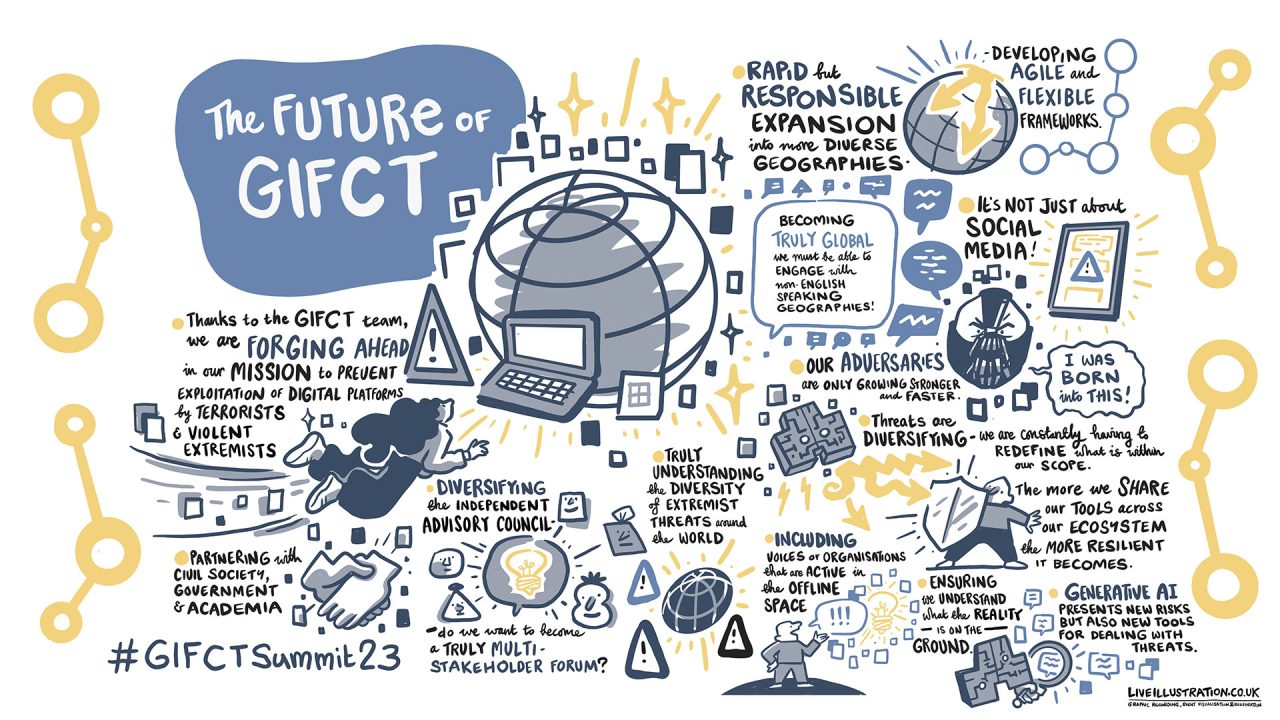 The FUTURE OF
GIFCT
Thanks to the GIFCT team,
we are FORGING AHEAD
in our MISSION to PREVENT
EXPLOITATION OF DIGITAL PLATFORMS
by TERRORISTS
& VIOLENT
EXTREMISTS
PARTNERING with
CIVIL SOCIETY,
GOVERNMENT
& ACADEMIA
#GIFCTSummit23
DIVERSIFYING
the INDEPENDENT
ADVISORY COUNCIL-
-do we want to become
a TRULY MULTI-
STAKEHOLDER FORUM?
TRULY
UNDERSTANDING
the DIVERSITY
of EXTREMIST
THREATS around
the WORLD
RAPID but
RESPONSIBLE
EXPANSION
into more DIVERSE
GEOGRAPHIES-
-DEVELOPING
AGILE and
FLEXIBLE
FRAMEWORKS.
BECOMING
TRULY GLOBAL
we must be able to
ENGAGE with
non-ENGLISH
SPEAKING
GEOGRAPHIES!
IT'S NOT JUST about
SOCIAL
MEDIA!
OUR ADVERSARIES
are ONLY GROWING STRONGER
and FASTER.
I WAS
BORN
into THIS!
Threats are
DIVERSIFYING - we are constantly having to
REDEFINE what is within
our SCOPE.
The more we SHARE
our TOOLS across
our ECOSYSTEM
the MORE RESILIENT
IT BECOMES.
INCLUDING
VOICES OF ORGANISATIONS
that are ACTIVE in
the OFFLINE
SPACE
!!!
ENSURING
we UNDERSTAND
what the REALITY
- IS ON THE -
GROUND.
GENERATIVE AI
PRESENTS NEW RISKS
BUT ALSO NEW TOOLS
FOR DEALING WITH
THREATS.
LIVEILLUSTRATION.CO.UK
GRAPHIC RECORDING, EVENT VISUALISATION & ILLUSTRATION